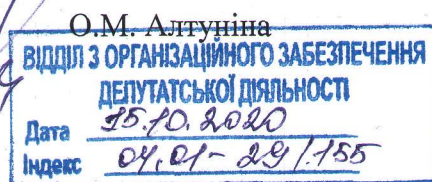 О.М. Алтуніна
ВІДДІЛ З ОРГАНІЗАЦІЙНОГО ЗАБЕЗПЕЧЕННЯ
ДЕПУТАТСЬКОЇ ДІЯЛЬНОСТІ
Дата 15.10.2020
Індекс 04.01-29/155